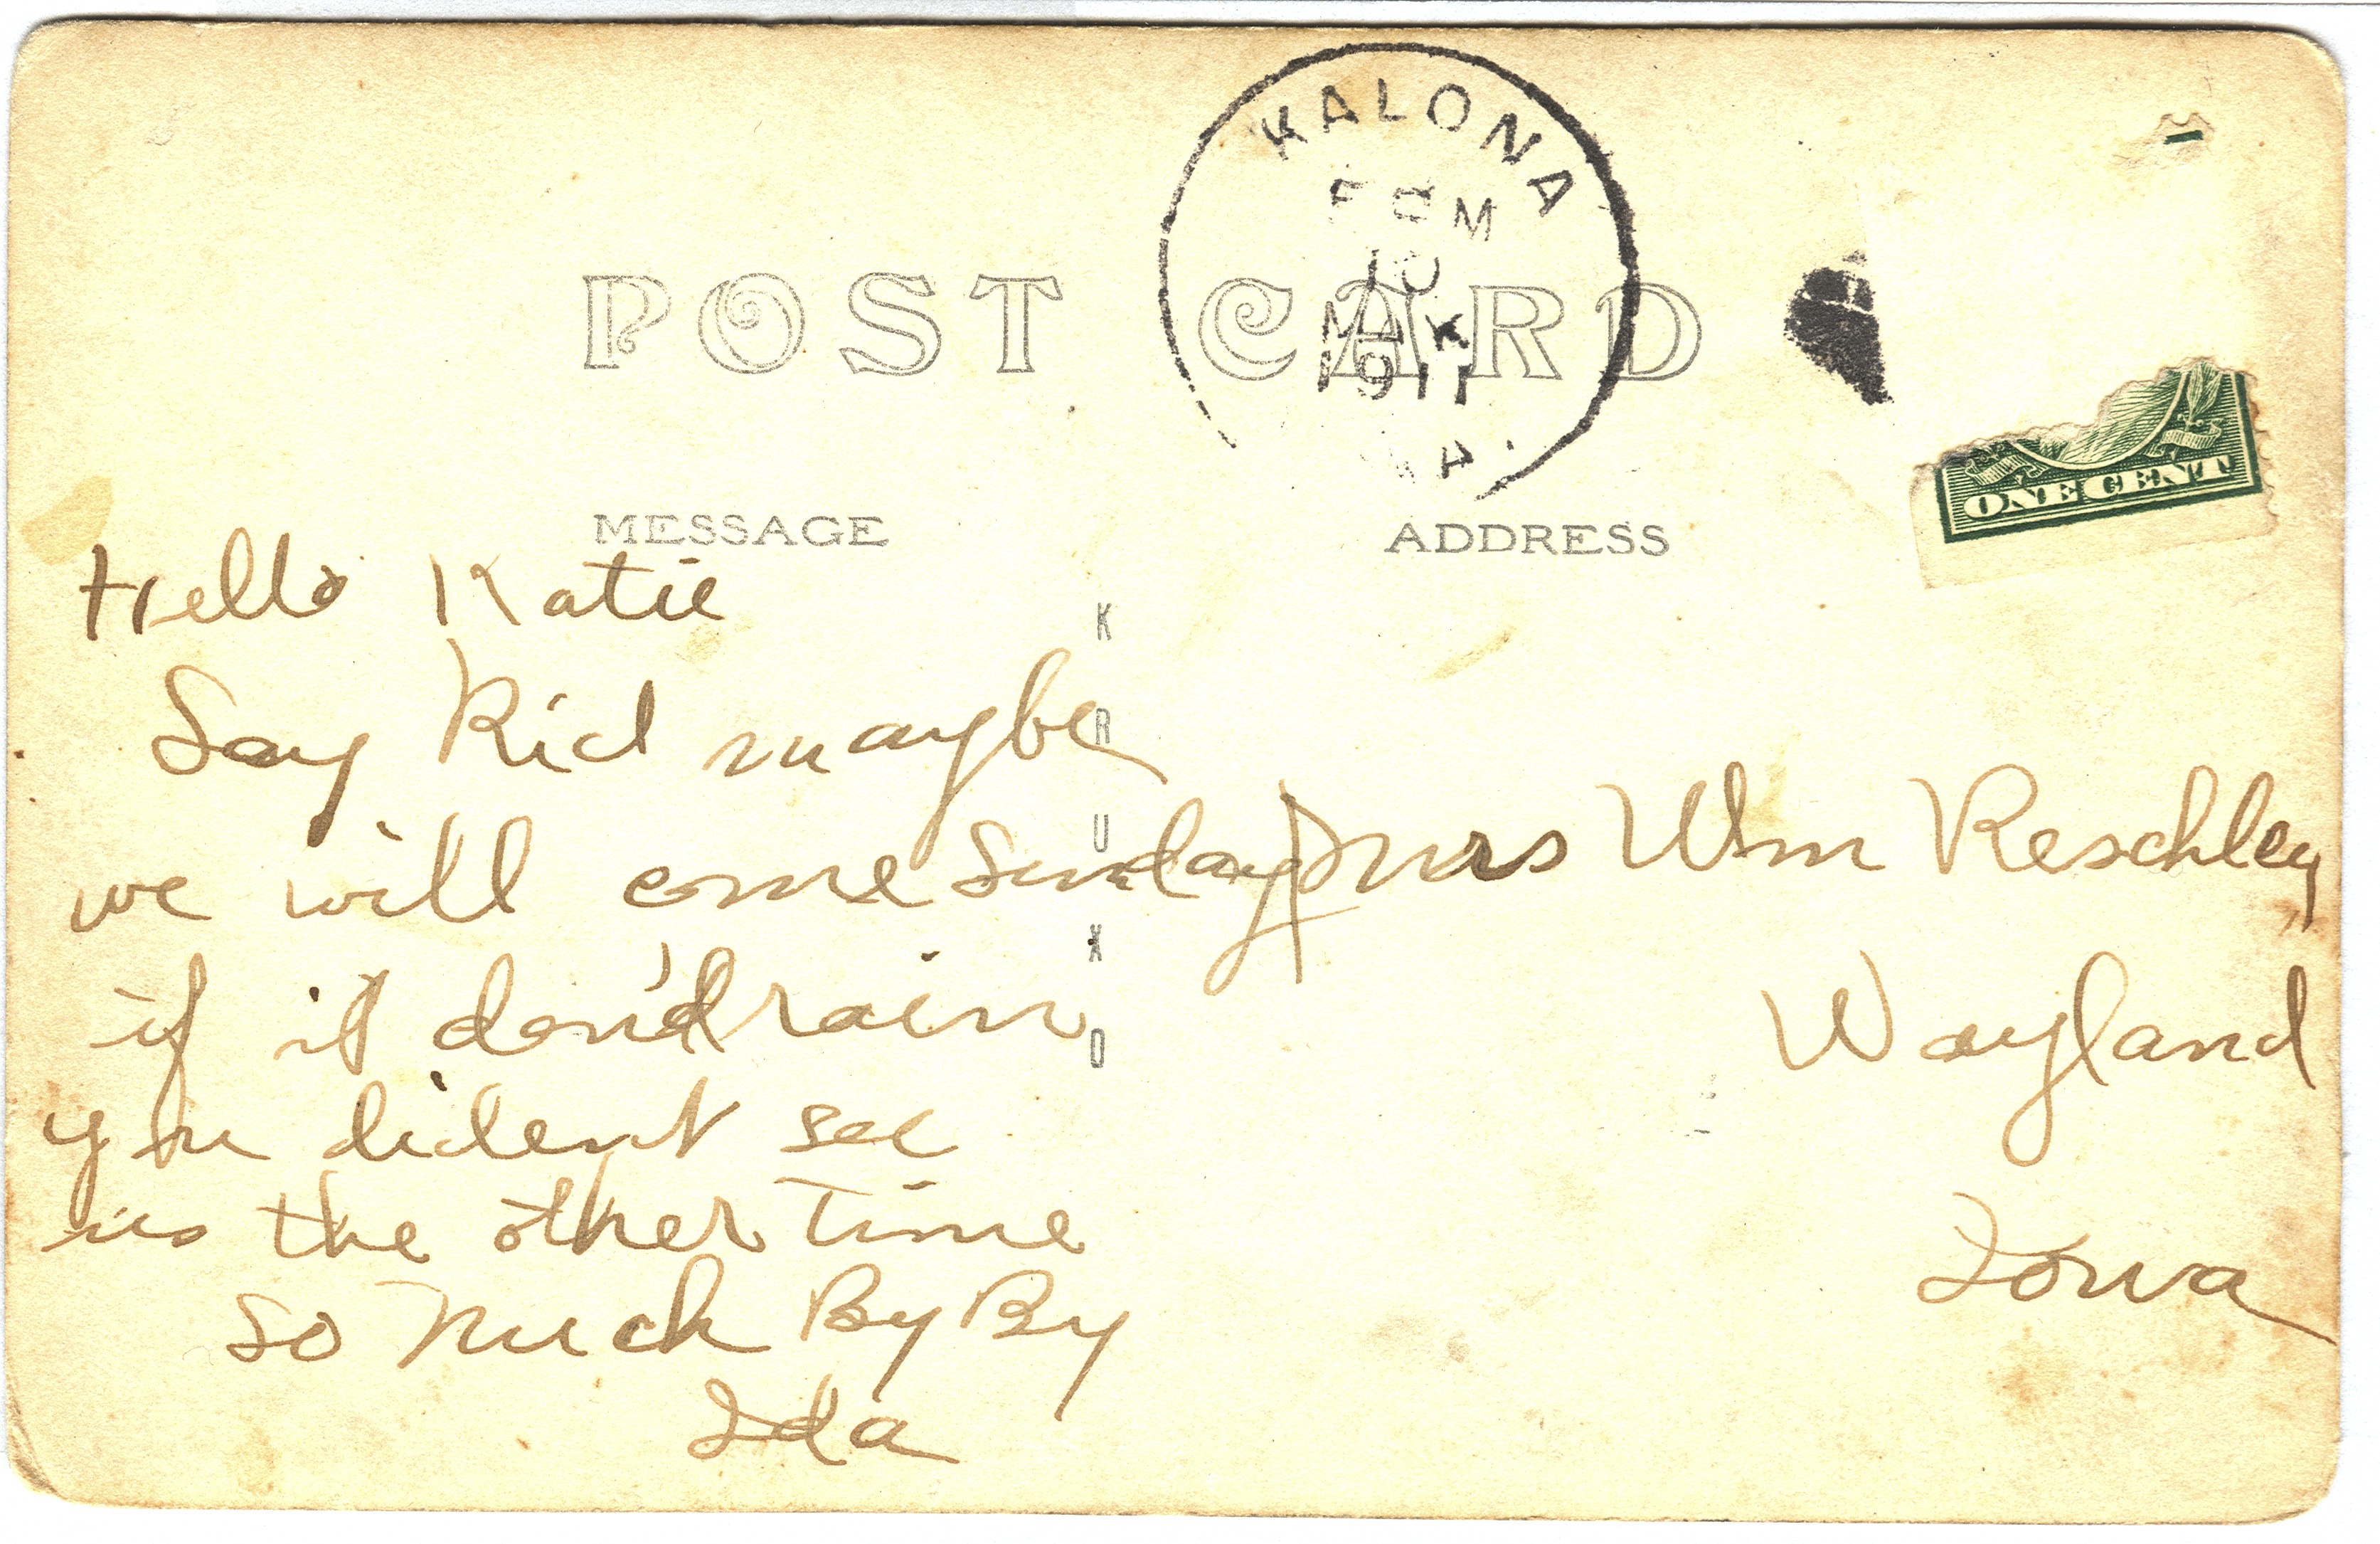 POST CARD
KALONA
10
MAR
1911
A.
ONE CENT
MESSAGE
ADDRESS
KRUXO
Hello Katie
Say Kid maybe
we will come Sunday
if it don'd rain
you dident see
us the other Time
so much By By
Ida
Mrs Wm Reschley
Wayland
Iowa